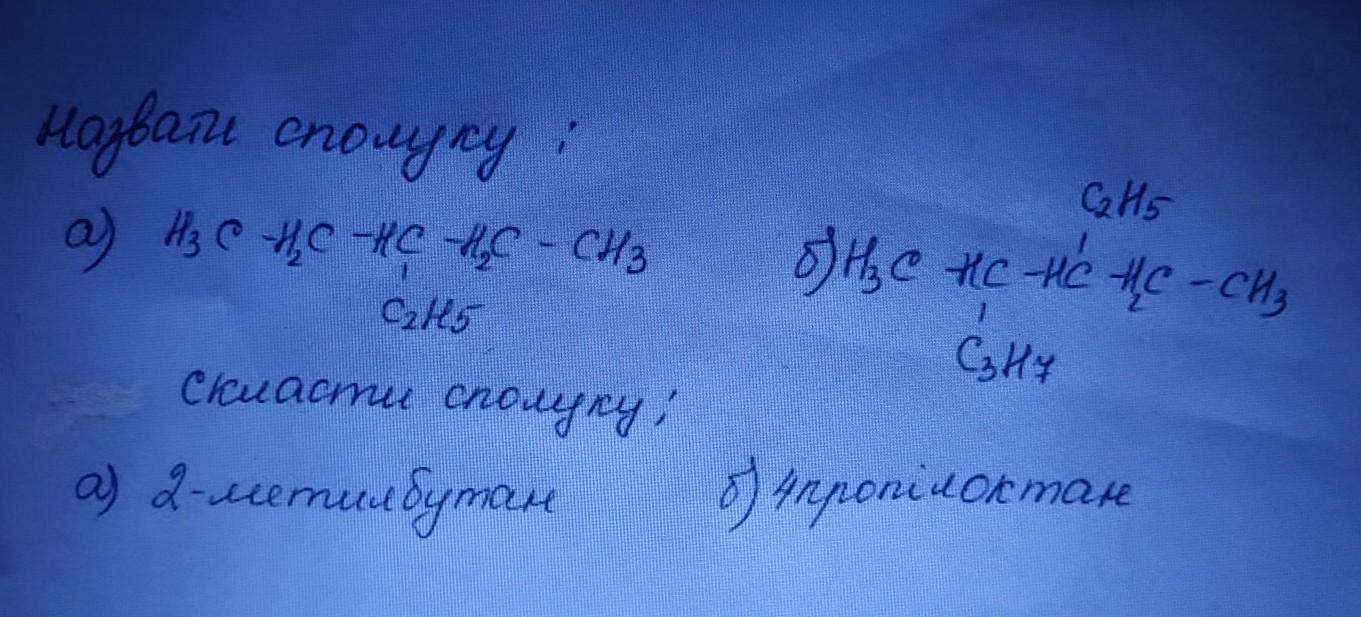 Назвати сполуку :
C₂H₅
а) H₃C -H₂C -HC -H₂C - CH₃ б) H₃C -HC -HC -H₂C - CH₃
C₂H₅
C₃H₇
Скласти сполуку ;
а) 2-метилбутан б) 4пропілоктан